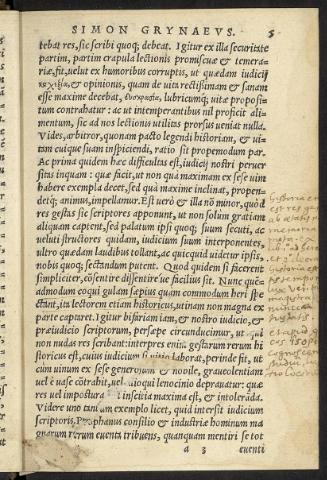 SIMON GRYNAEVS. 5
tebat res, sic scribi quoq; debeat. Igitur ex illa securitate
partim, partim crapula lectionis promiscuæ & temera-
riæ, fit, uelut ex humoribus corruptis, ut quædam iudicij
& opinionis, quam de uita rectissimam & sanam
esse maxime decebat, lubricumq; uitæ proposi-
tum contrahatur: ac ut intemperantibus nil proficit ali-
mentum, sic ad nos lectionis utilitas prorsus ueniat nulla.
Vides, arbitror, quonam pacto legendi historiam, & ui-
tam cuiusque suam inspiciendi, ratio sit propemodum par.
Ac prima quidem hæc difficultas est, iudicij nostri peruer
sitas inquam: quæ facit, ut non quà maximam ex sese uim
habere exempla decet, sed quà maxime inclinat, propen-
detq; animus, impellamur. Est uerò & illa nō minor, quòd
res gestas sic scriptores apponunt, ut non solùm gratiam
aliquam captent, sed palatum ipsi quoq; suum secuti, ac
ueluti structores quidam, iudicium suum interponentes,
ultro quædam laudibus tollant, ac quicquid uidetur ipsis,
nobis quoq; sectandum putent. Quod quidem si facerent
simpliciter, cōsentire dissentire ue facilius sit. Nunc quē-
admodum coqui gulam sapius quàm commodum heri spe
ctant, ita lectorem etiam historicus, utinam non magna ex
parte captaret. Igitur bifariam iam, & nostro iudicio, &
præiudicio scriptorum, persæpe circunducimur, ut qui
non nudas res scribant: interpres enim gestarum rerum hi
storicus est, cuius iudicium si uitio laborat, perinde fit, ut
cùm uinum ex sese generosum & nobile, graueolentiam
uel è uase cōtrahit, uel alioqui lenocinio deprauatur: quæ
res uel impostura uel inscitia maxima est, & intolerāda.
Videre uno tantum exemplo licet, quid intersit iudicium
scriptoris. Prophanus consilio & industriæ hominum ma
gnarum rerum euenta tribuens, quanquam mentiri se tot
a 3 euenti